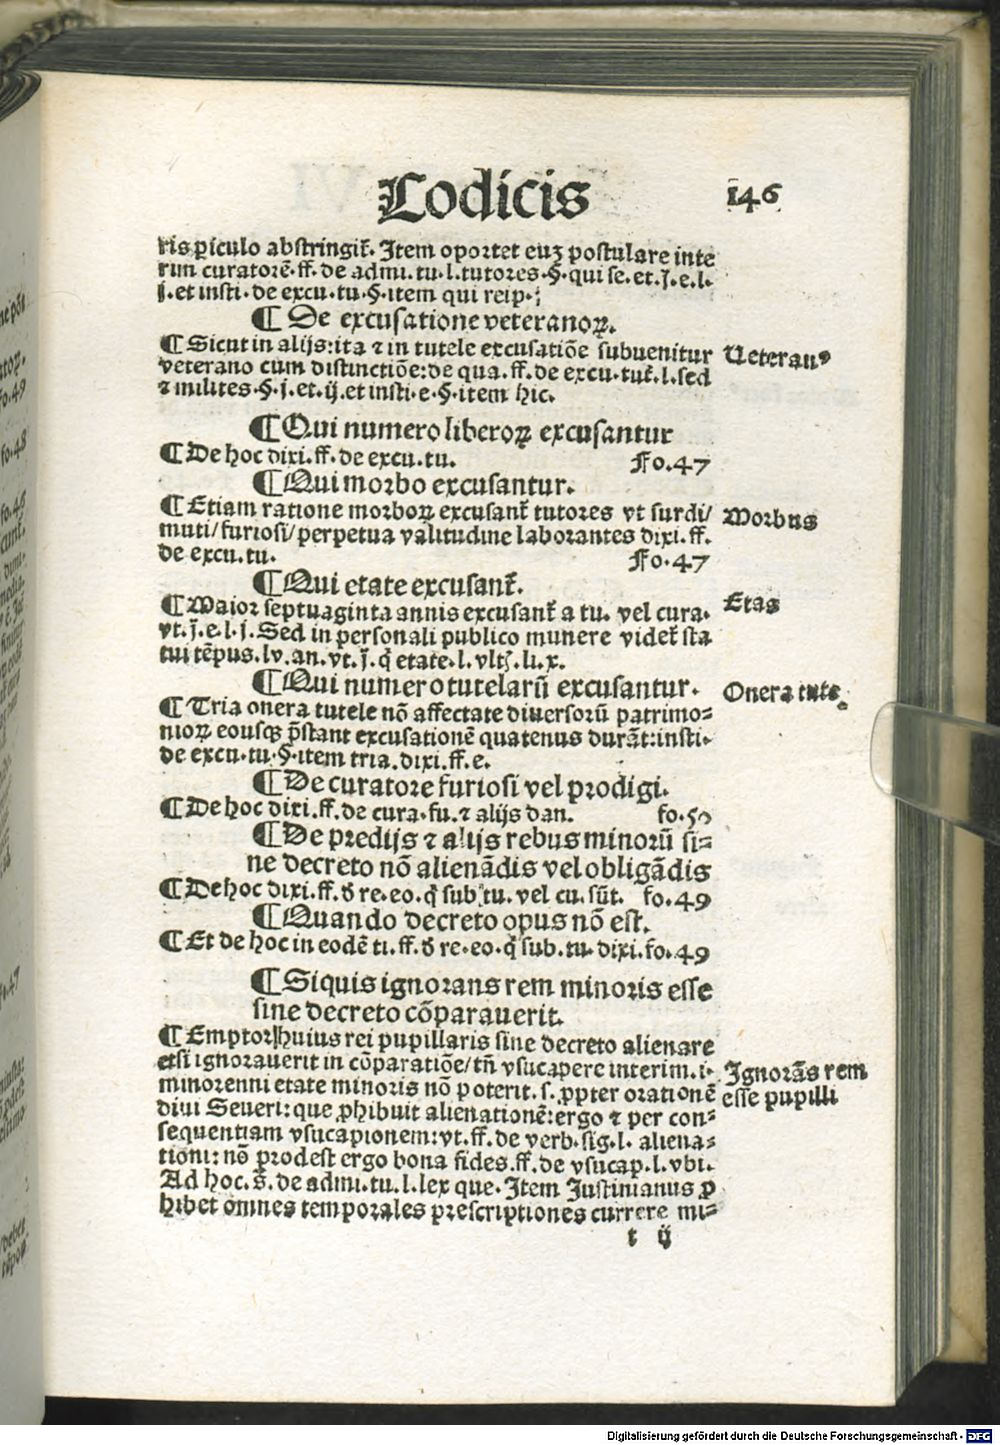 Codicis 146
ris ꝑiculo abstringit᷑. Item oportet euꝫ postulare inte
rim curatorē.ff. de admi.tu.l.tutores.§.qui se.et.j̄.e.l.
j.et insti.de excu.tu.§.item qui reip.;
¶ De excusatione veteranoꝝ.
¶ Sicut in alijs:ita ⁊ in tutele excusatiōe subuenitur
veterano cum distinctiōe:de qua.ff.de excu.tut᷑.l.sed
⁊ milites.§.j.et.ij.et insti.e.§.item hic.
Ueteranꝰ
¶ Qui numero liberoꝝ excusantur
¶ De hoc dixi.ff.de excu.tu. Fo.47
¶ Qui morbo excusantur.
¶ Etiam ratione morboꝝ excusant᷑ tutores vt surdi/
muti/furiosi/perpetua valitudine laborantes dixi.ff.
de excu.tu. Fo.47
Morbus
¶ Qui etate excusant᷑.
¶ Maior septuaginta annis excusant᷑ a tu. vel cura.
vt.j̄.e.l.j. Sed in personali publico munere videt᷑ sta
tui tēpus.lv.an.vt.j̄.q̇ etate.l.vlt.li.x.
Etas
¶ Qui numero tutelarū excusantur.
¶ Tria onera tutele nō affectate diuersorū patrimo⸗
nioꝝ eousqꝫ p̄stant excusationē quatenus durāt:insti.
de excu.tu.§.item tria.dixi.ff.e.
Onera tute
¶ De curatore furiosi vel prodigi.
¶ De hoc dixi.ff.de cura.fu.⁊ alijs dan. fo.50
¶ De predijs ⁊ alijs rebus minorū si⸗
ne decreto nō alienādis vel obligādis
¶ De hoc dixi.ff.ð re.eo.q̇ sub tu. vel cu. sūt. fo.49
¶ Quando decreto opus nō est.
¶ Et de hoc in eodē ti.ff.ð re.eo.q̇ sub.tu.dixi.fo.49
¶ Siquis ignorans rem minoris esse
sine decreto cōparauerit.
¶ Emptor huius rei pupillaris sine decreto alienare
etsi ignorauerit in cōparatiōe/tn̄ vsucapere interim.i.
minorenni etate minoris nō poterit.s.ꝓpter orationē
diui Seueri:que ꝓhibuit alienationē:ergo ⁊ per con⸗
sequentiam vsucapionem:vt.ff.de verb.sig.l. aliena⸗
tioni: nō prodest ergo bona fides.ff.de vsucap.l.vbi.
Ad hoc.s̄.de admi.tu.l.lex que. Item Justinianus ꝓ
hibet omnes temporales prescriptiones currere mi⸗
Ignorās rem
esse pupilli
t ij
Digitalisierung gefördert durch die Deutsche Forschungsgemeinschaft - DFG